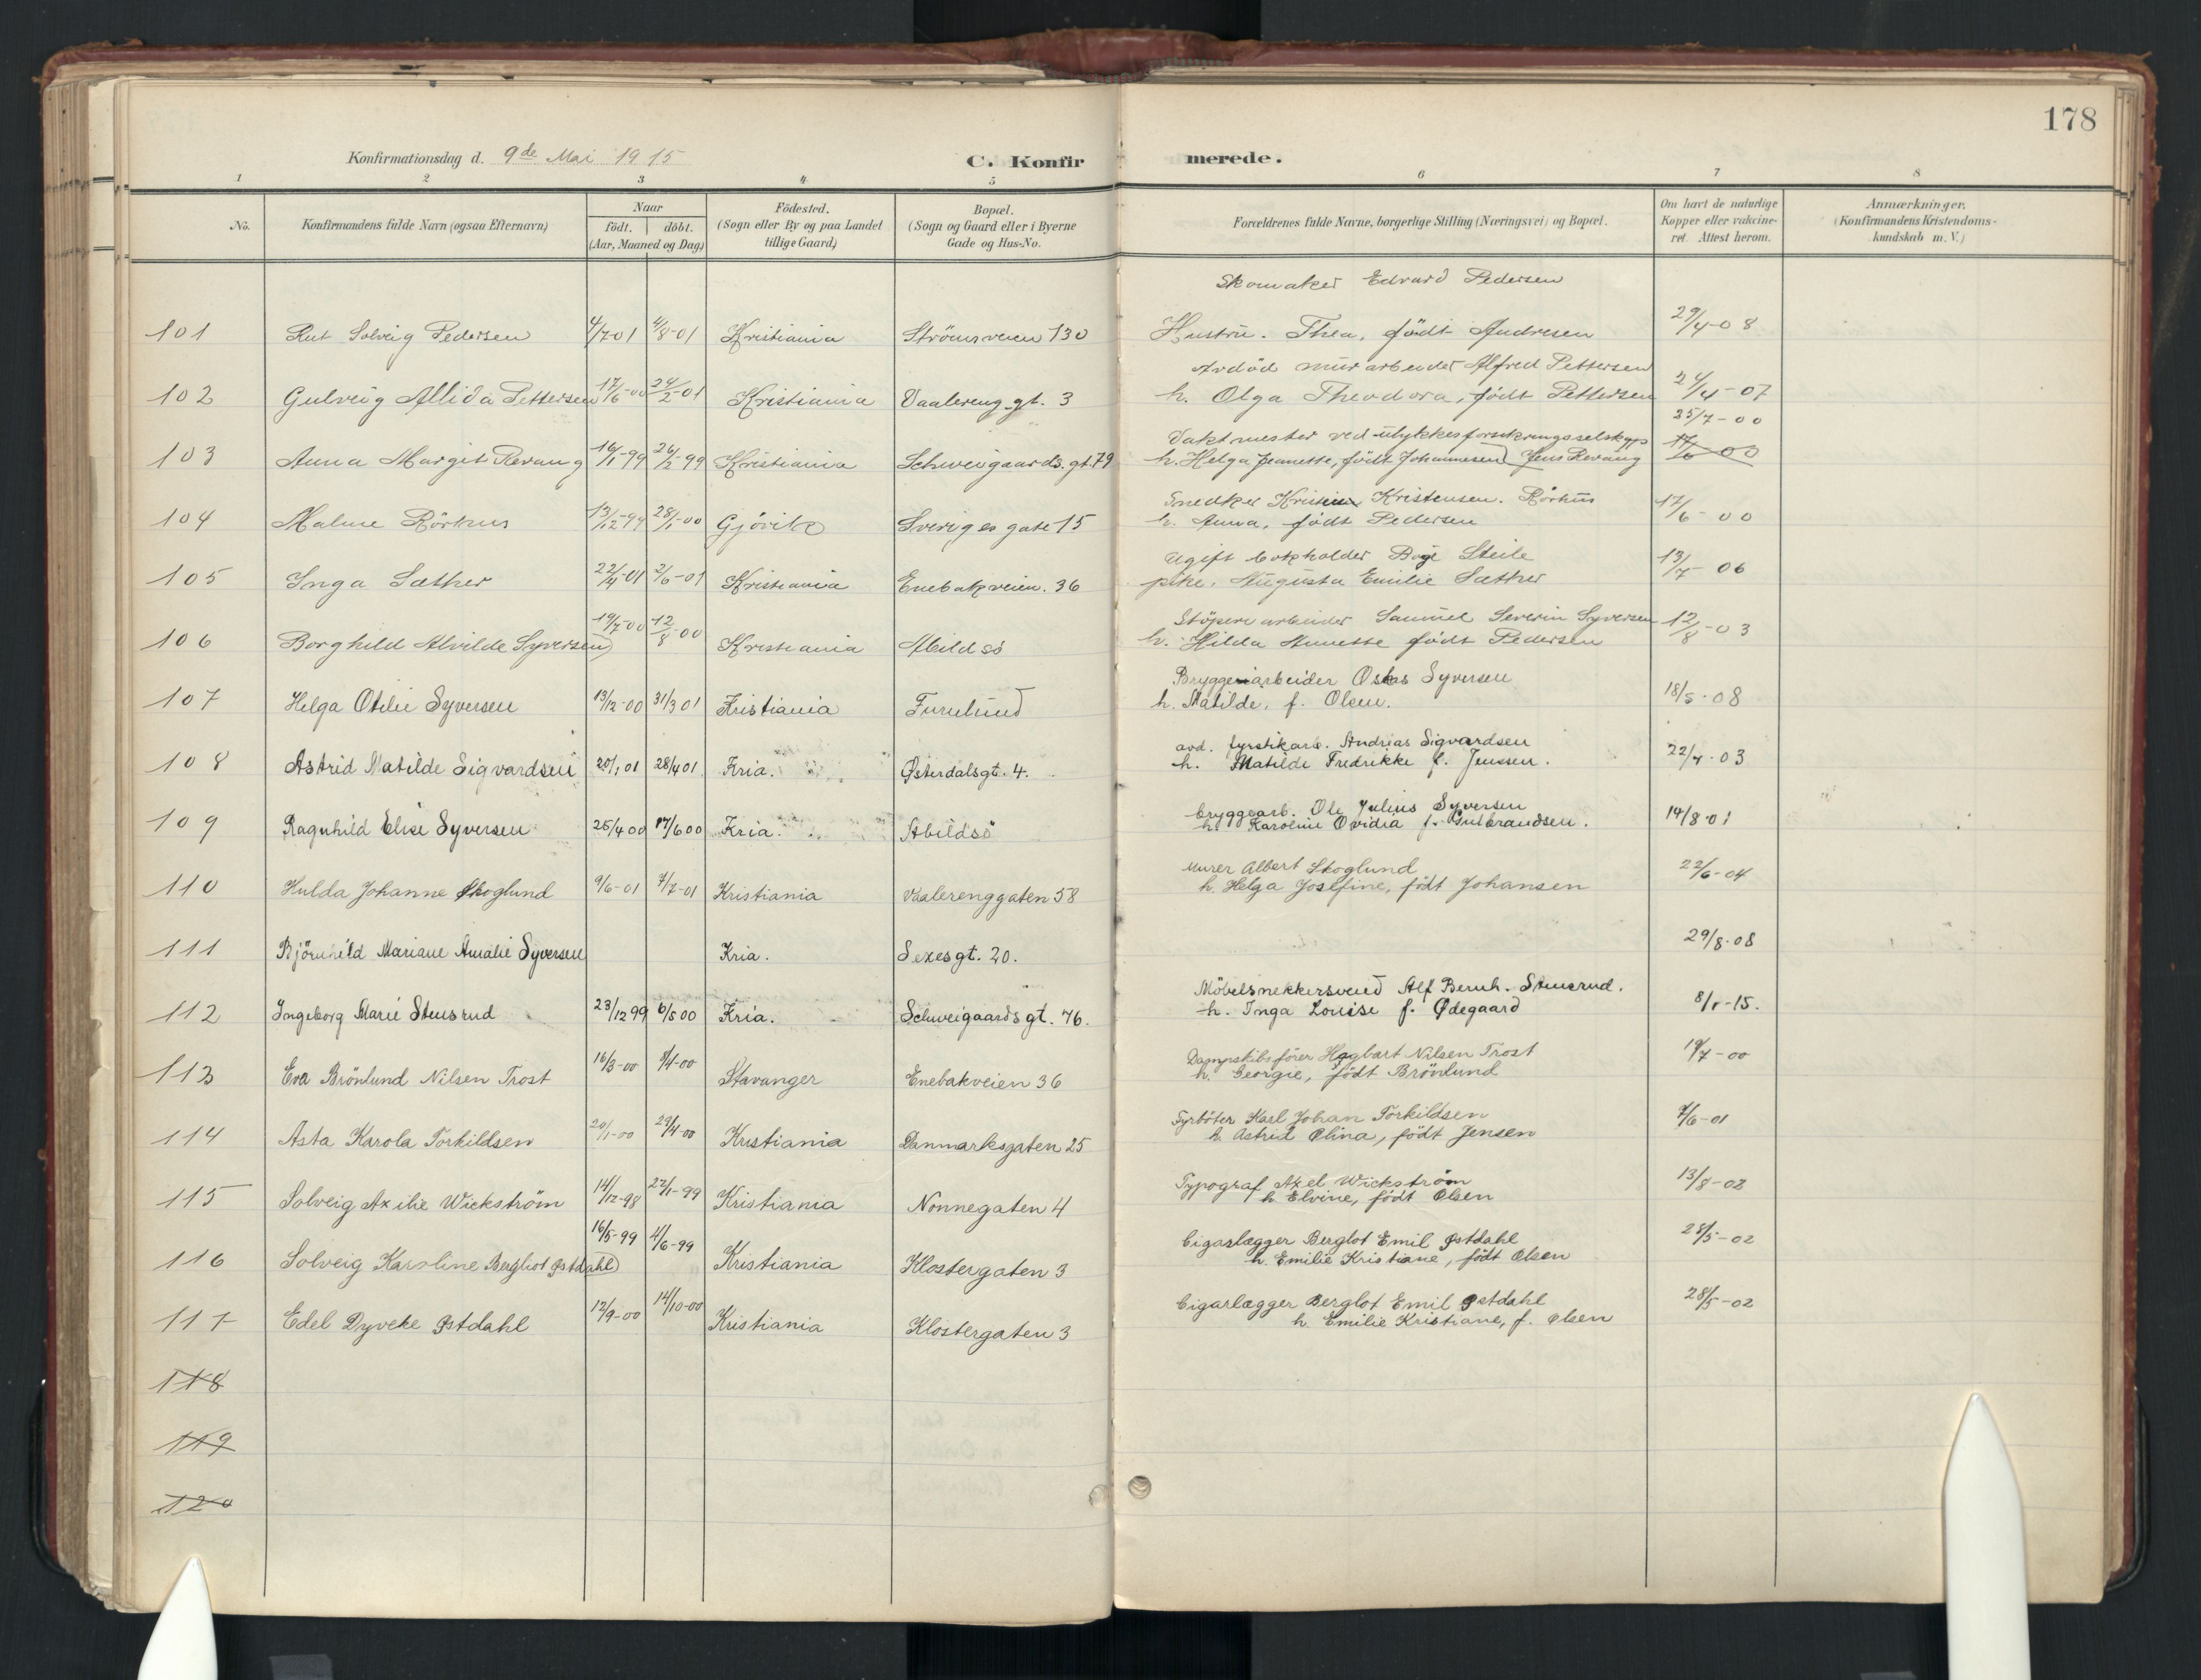 178
Konfirmationsdag d. 9de Mai 1915 C. Konfirmerede.
1 2 3 4 5 6 7 8
No. Konfirmandens fulde Navn (ogsaa Efternavn) Naar födt. döbt. (Aar, Maaned og Dag) Födested. (Sogn eller By og paa Landet tillige Gaard) Bopæl. (Sogn og Gaard eller i Byerne Gade og Hus-No. Forældrenes fulde Navne, borgerlige Stilling (Næringsvei) og Bopæl. Om havt de naturlige Kopper eller vakcineret. Attest herom. Anmærkninger, (Konfirmandens Kristendomskundskab m. V.)
Skomaker Edvard Pedersen
101 Rut Solveig Pedersen 4/7 01 4/8-01 Kristiania Strömsveien 130 Hustru. Thea, födt Andresen 29/4-08
Avdöd murarbeider Alfred Pettersen
102 Gulveig Allida Pettersen 17/6-00 24/2-01 Kristiania Vaalereng gt. 3 h. Olga Theodora, födt Pettersen 24/4-07
Vaktmester ved ulykkesforsikringsselskap 25/7-00
103 Anna Margit Revang 16/1-99 26/2-99 Kristiania Schweigaards. gt. 79 h. Helga Jeanette, födt Johannesen) Jens Revang 17/6 00
Snedker Kristian Kristensen. Rörhus
104 Malme Rörhus 13/12-99 28/1-00 Gjövik Sveriges gate 15 h. Anna, födt Pedersen 17/6-00
Ugift bokholder Steile
105 Inga Sæther 22/4-01 2/6-01 Kristiania Enebakveien. 36 pike, Augusta Emilie Sæther 13/7-06
Stöperiarbeider Samuel Severin Syversen
106 Borghild Alvilde Syversen) 19/7-00 12/8-00 Kristiania Abildsö h. Hilda Annette födt Pedersen 12/8-03
Bryggeriarbeider Oskar Syversen
107 Helga Otilie Syversen 13/12-00 31/3 01 Kristiania Furulund h. Matilde, f. Olsen. 18/5-08
avd. fyrstikarb. Andreas Sigvardsen
108 Astrid Matilde Sigvardsen 20/1 01 28/4 01 Kria. Østerdalsgt. 4. h. Matilde Fredrikke f. Jenssen. 22/7-03
bryggearb. Ole Julius Syversen
109 Ragnhild Elise Syversen 25/4 00 17/6 00 Kria. Abildsö h. Karoline Ovidia f. Gulbrandsen. 14/8-01
Murer Albert Skoglund
110 Hulda Johanne Skoglund 9/6-01 7/7-01 Kristiania Vaalerenggaten 58 h. Helga Josefine, födt Johansen 22/6-04
111 Björnhild Mariane Amalie Syversen Kria. Sexesgt. 20. 29/8-08
Möbelsnekkersvend Alf Bernh. Stensrud.
112 Ingeborg Marie Stensrud 23/12 99 6/5 00 Kria. Schweigaards gt. 76. h. Inga Louise f. Ødegaard
Dampskibsförer Hagbart Nilsen Trost
113 Eva Brönlund Nilsen Trost 16/3-00 Stavanger Enebakveien 36 h. Georgie, födt Brönlund 19/7-00
Fyrböter Karl Johan Torkildsen
114 Asta Karola Torkildsen 20/1-00 29/4-00 Kristiania Danmarksgaten 25 h. Astrid Olina, födt Jensen 7/6-01
Typograf Axel Wickström
115 Solveig Axilie Wickström 14/12-98 22/1-99 Kristiania Nonnegaten 4 h. Elvine, födt Olsen 13/8-02
Cigarlægger Berglot Emil Østdahl
116 Solveig Karoline Bergliot Østdahl) 16/5-99 4/6-99 Kristiania Klostergaten 3 h. Emilie Kristiane, födt Olsen 28/5-02
Cigarlægger Berglot Emil Østdahl
117 Edel Dyveke Østdahl 12/9-00 14/10-00 Kristiania Klostergaten 3 h. Emilie Kristiane, f. Olsen 28/5-02
118
119
120